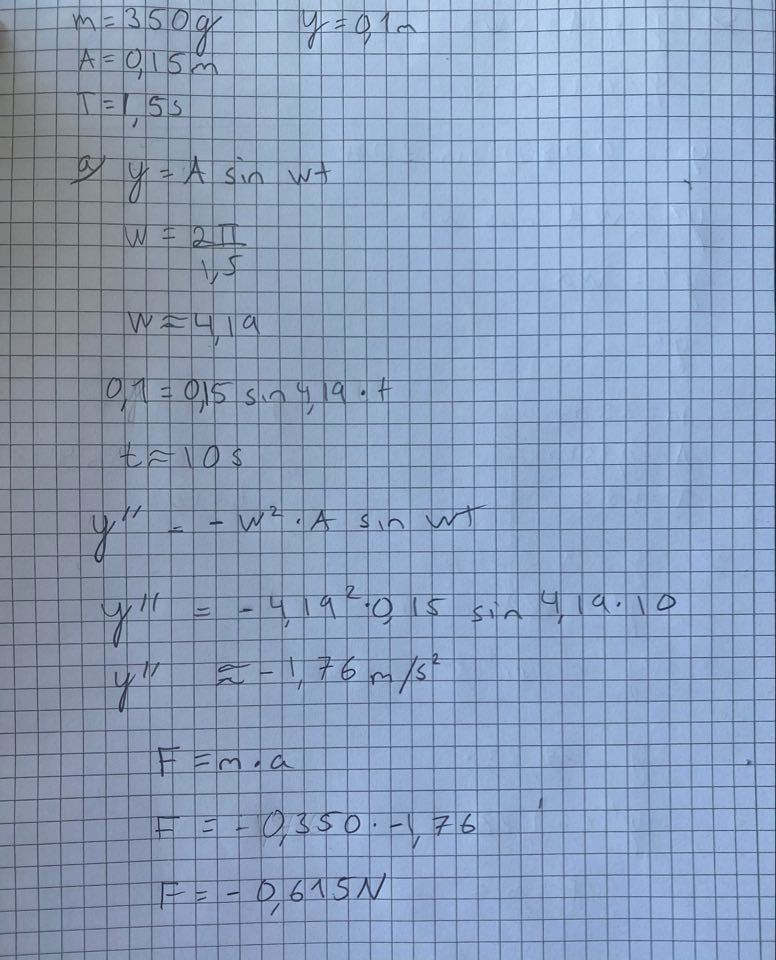 m = 350g y = 0,1m
A = 0,15m
T = 1,5s
a) y = A sin wt
w = 2π
1,5
w ≈ 4,19
0,1 = 0,15 sin 4,19 · t
t ≈ 10s
y'' = - w² · A sin wt
y'' = - 4,19² · 0,15 sin 4,19 · 10
y'' ≈ - 1,76 m/s²
F = m · a
F = - 0,350 · -1,76
F = - 0,615N